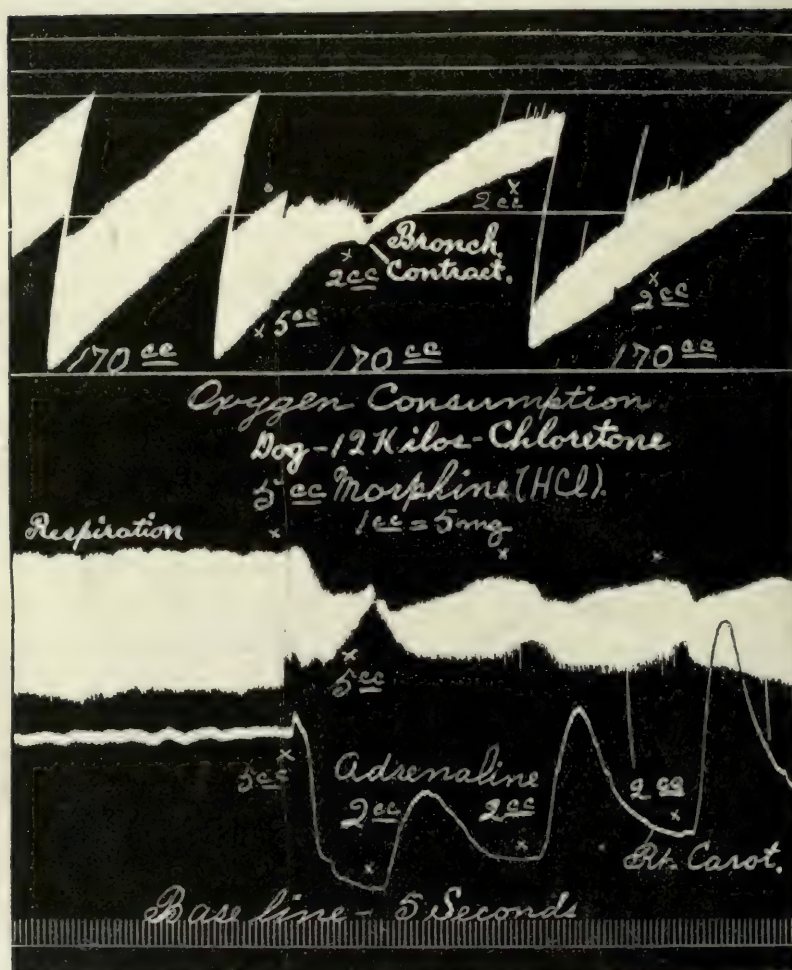 2 cc
Bronch.
Contract.
2 cc
5 cc
2 cc
170 cc
170 cc
170 cc
Oxygen Consumption
Dog-12 Kilos-Chloretone
5 cc Morphine (HCl).
1 cc = 5 mg
Respiration
5 cc
5 cc
Adrenaline
2 cc
2 cc
2 cc
Rt. Carot.
Base line - 5 Seconds